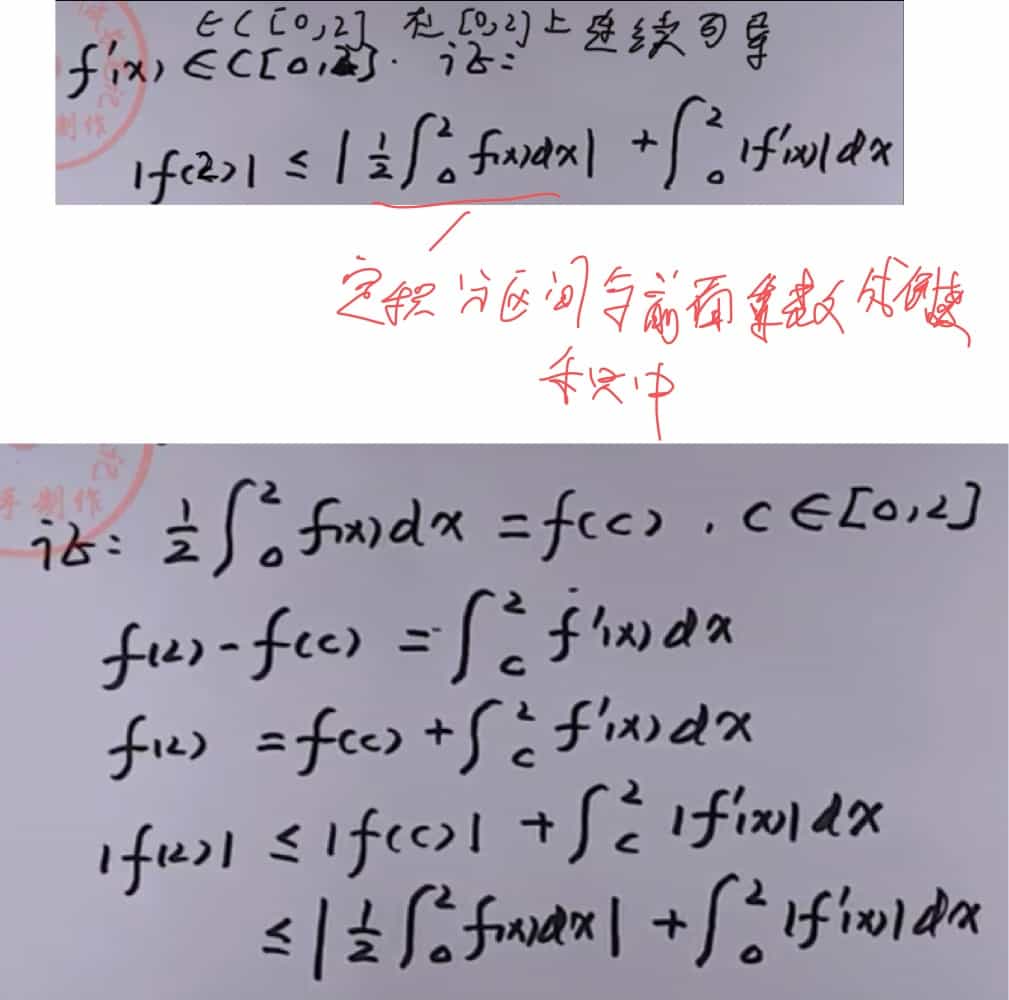 ∈C[0,2] 在[0,2]上连续可导
f'(x)∈C[0,2]. 证:
|f(2)| ≤ |½∫₀² f(x)dx| + ∫₀² |f'(x)|dx
定积分区间与前面系数成倒数
积分中
证: ½∫₀² f(x)dx = f(c), c∈[0,2]
f(2)-f(c) = ∫_c² f'(x)dx
f(2) = f(c) + ∫_c² f'(x)dx
|f(2)| ≤ |f(c)| + ∫_c² |f'(x)|dx
≤ |½∫₀² f(x)dx| + ∫₀² |f'(x)|dx
制作
制作